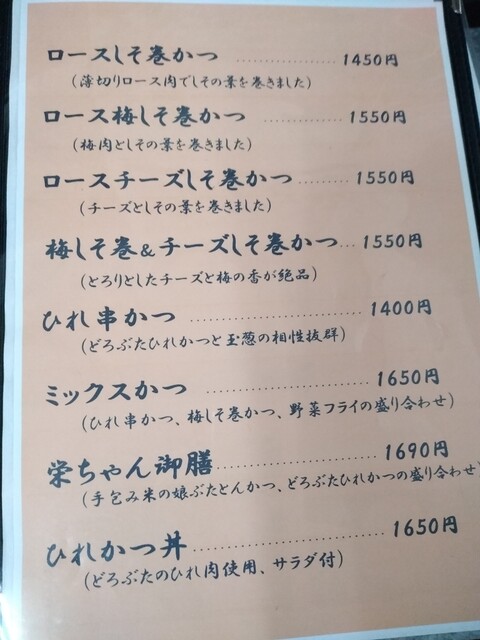 ロースしそ巻かつ ………… 1450円
(薄切りロース肉でしその葉を巻きました)
ロース梅しそ巻かつ ………… 1550円
(梅肉としその葉を巻きました)
ロースチーズしそ巻かつ ……… 1550円
(チーズとしその葉を巻きました)
梅しそ巻&チーズしそ巻かつ… 1550円
(とろりとしたチーズと梅の香が絶品)
ひれ串かつ ………………… 1400円
(どろぶたひれかつと玉葱の相性抜群)
ミックスかつ ………………… 1650円
(ひれ串かつ、梅しそ巻かつ、野菜フライの盛り合わせ)
栄ちゃん御膳………………… 1690円
(手包み米の娘ぶたとんかつ、どろぶたひれかつの盛り合わせ
ひれかつ丼 ………………… 1650円
(どろぶたのひれ肉使用、サラダ付)